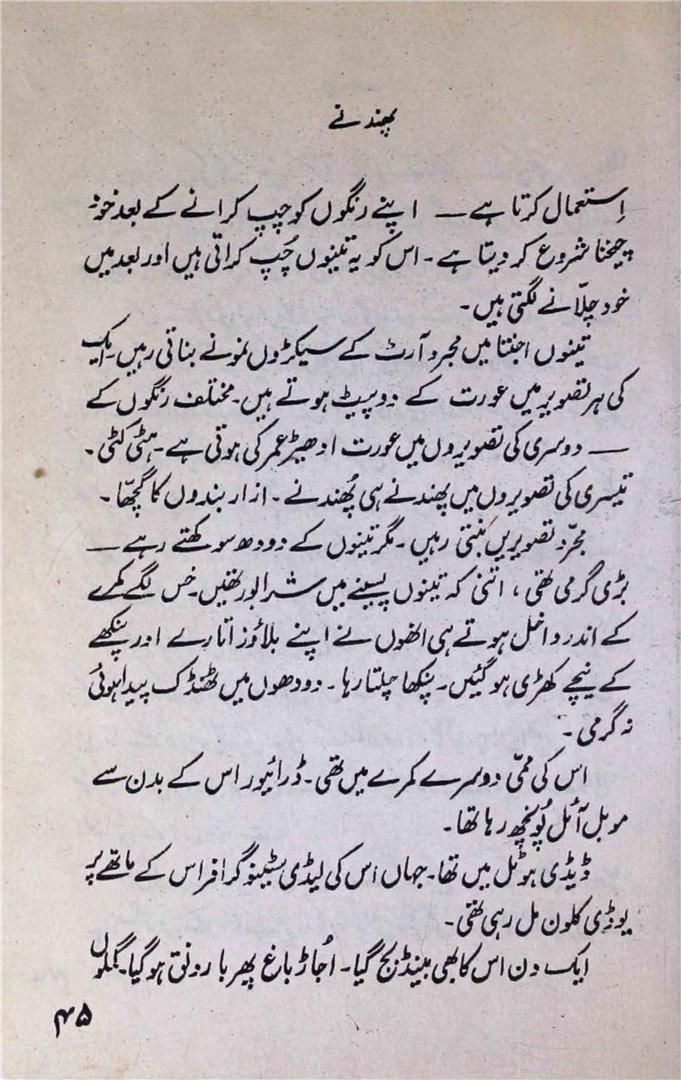 پھندنے
اِستعمال کرتا ہے — اپنے رنگوں کو چپ کرانے کے بعد خود
چیخنا شروع کر دیتا ہے۔ اس کو یہ تینوں چُپ کراتی ہیں اور بعد میں
خود چِلّانے لگتی ہیں۔
تینوں اجنتا میں مجرد آرٹ کے سیکڑوں نمونے بناتی رہیں۔ ایک
کی ہر تصویر میں عورت کے دو پیٹ ہوتے ہیں۔ مختلف رنگوں کے
— دوسری کی تصویروں میں عورت ادھیڑ عمر کی ہوتی ہے۔ ہٹی کٹی۔
تیسری کی تصویروں میں پھندنے ہی پُھندنے۔ ازار بندوں کا گچھّا۔
مجرّد تصویریں بنتی رہیں۔ مگر تینوں کے دودھ سوکھتے رہے —
بڑی گرمی تھی، اتنی کہ تینوں پسینے میں شرابور تھیں۔ خس لگے کمرے
کے اندر داخل ہوتے ہی انھوں نے اپنے بلاؤز اتارے اور پنکھے
کے نیچے کھڑی ہو گئیں۔ پنکھا چلتا رہا۔ دودھوں میں ٹھنڈک پیدا ہوئی
نہ گرمی۔
اس کی ممّی دوسرے کمرے میں تھی۔ ڈرائیور اس کے بدن سے
موبل آئل پُونچھ رہا تھا۔
ڈیڈی ہوٹل میں تھا۔ جہاں اس کی لیڈی سٹینو گرافر اس کے ماتھے پر
یوڈی کلون مل رہی تھی۔
ایک دن اس کا بھی بینڈ بج گیا۔ اُجاڑ باغ پھر با رونق ہو گیا۔ گملوں
۴۵